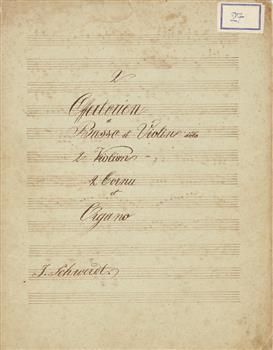 27
2
Offertorien
a
Basso et Violino solo
2 Violini
2 Cornu
et
Organo
J. Schweidt.